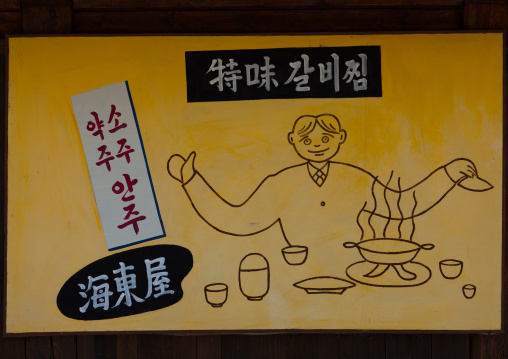 特味 갈비찜
약주
소주
안주
海東屋